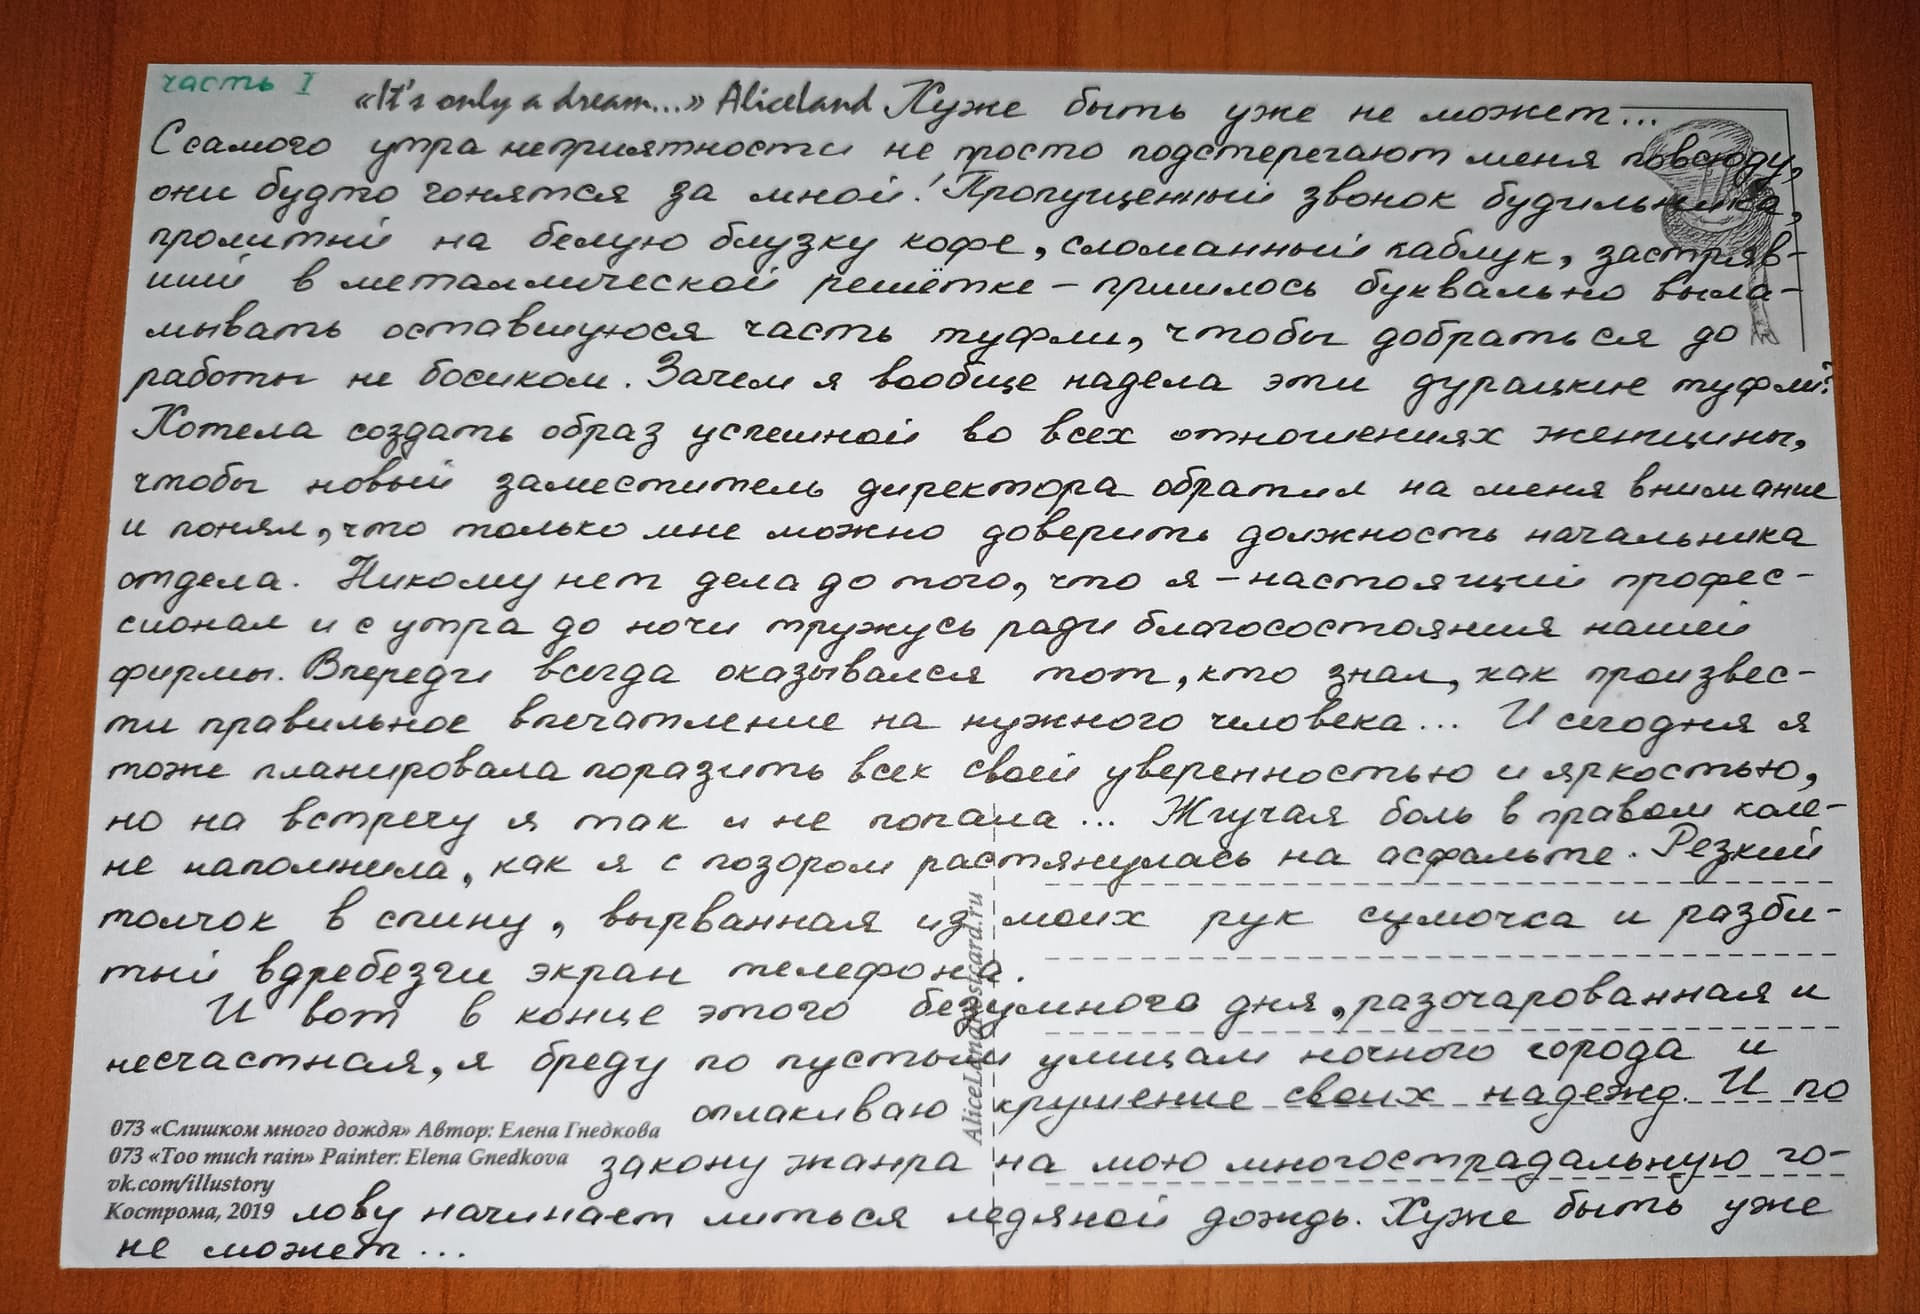 часть I
«It's only a dream...» Aliceland Хуже быть уже не может...
С самого утра неприятности не просто подстерегают меня повсюду,
они будто гонятся за мной! Пропущенный звонок будильника,
пролитый на белую блузку кофе, сломанный каблук, застряв-
ший в металлической решётке – пришлось буквально выла-
мывать оставшуюся часть туфли, чтобы добраться до
работы не босиком. Зачем я вообще надела эти дурацкие туфли?
Хотела создать образ успешной во всех отношениях женщины,
чтобы новый заместитель директора обратил на меня внимание
и понял, что только мне можно доверить должность начальника
отдела. Никому нет дела до того, что я – настоящий профес-
сионал и с утра до ночи тружусь ради благосостояния нашей
фирмы. Впереди всегда оказывался тот, кто знал, как произвес-
ти правильное впечатление на нужного человека... И сегодня я
тоже планировала поразить всех своей уверенностью и яркостью,
но на встречу я так и не попала... Жгучая боль в правом коле-
не напомнила, как я с позором растянулась на асфальте. Резкий
толчок в спину, вырванная из моих рук сумочка и разби-
тый вдребезги экран телефона.
И вот в конце этого безумного дня, разочарованная и
несчастная, я бреду по пустым улицам ночного города и
оплакиваю крушение своих надежд. И по
закону жанра на мою многострадальную го-
лову начинает литься ледяной дождь. Хуже быть уже
не может...
073 «Слишком много дождя» Автор: Елена Гнедкова
073 «Too much rain» Painter: Elena Gnedkova
vk.com/illustory
Кострома, 2019
AliceLandPostcard.ru